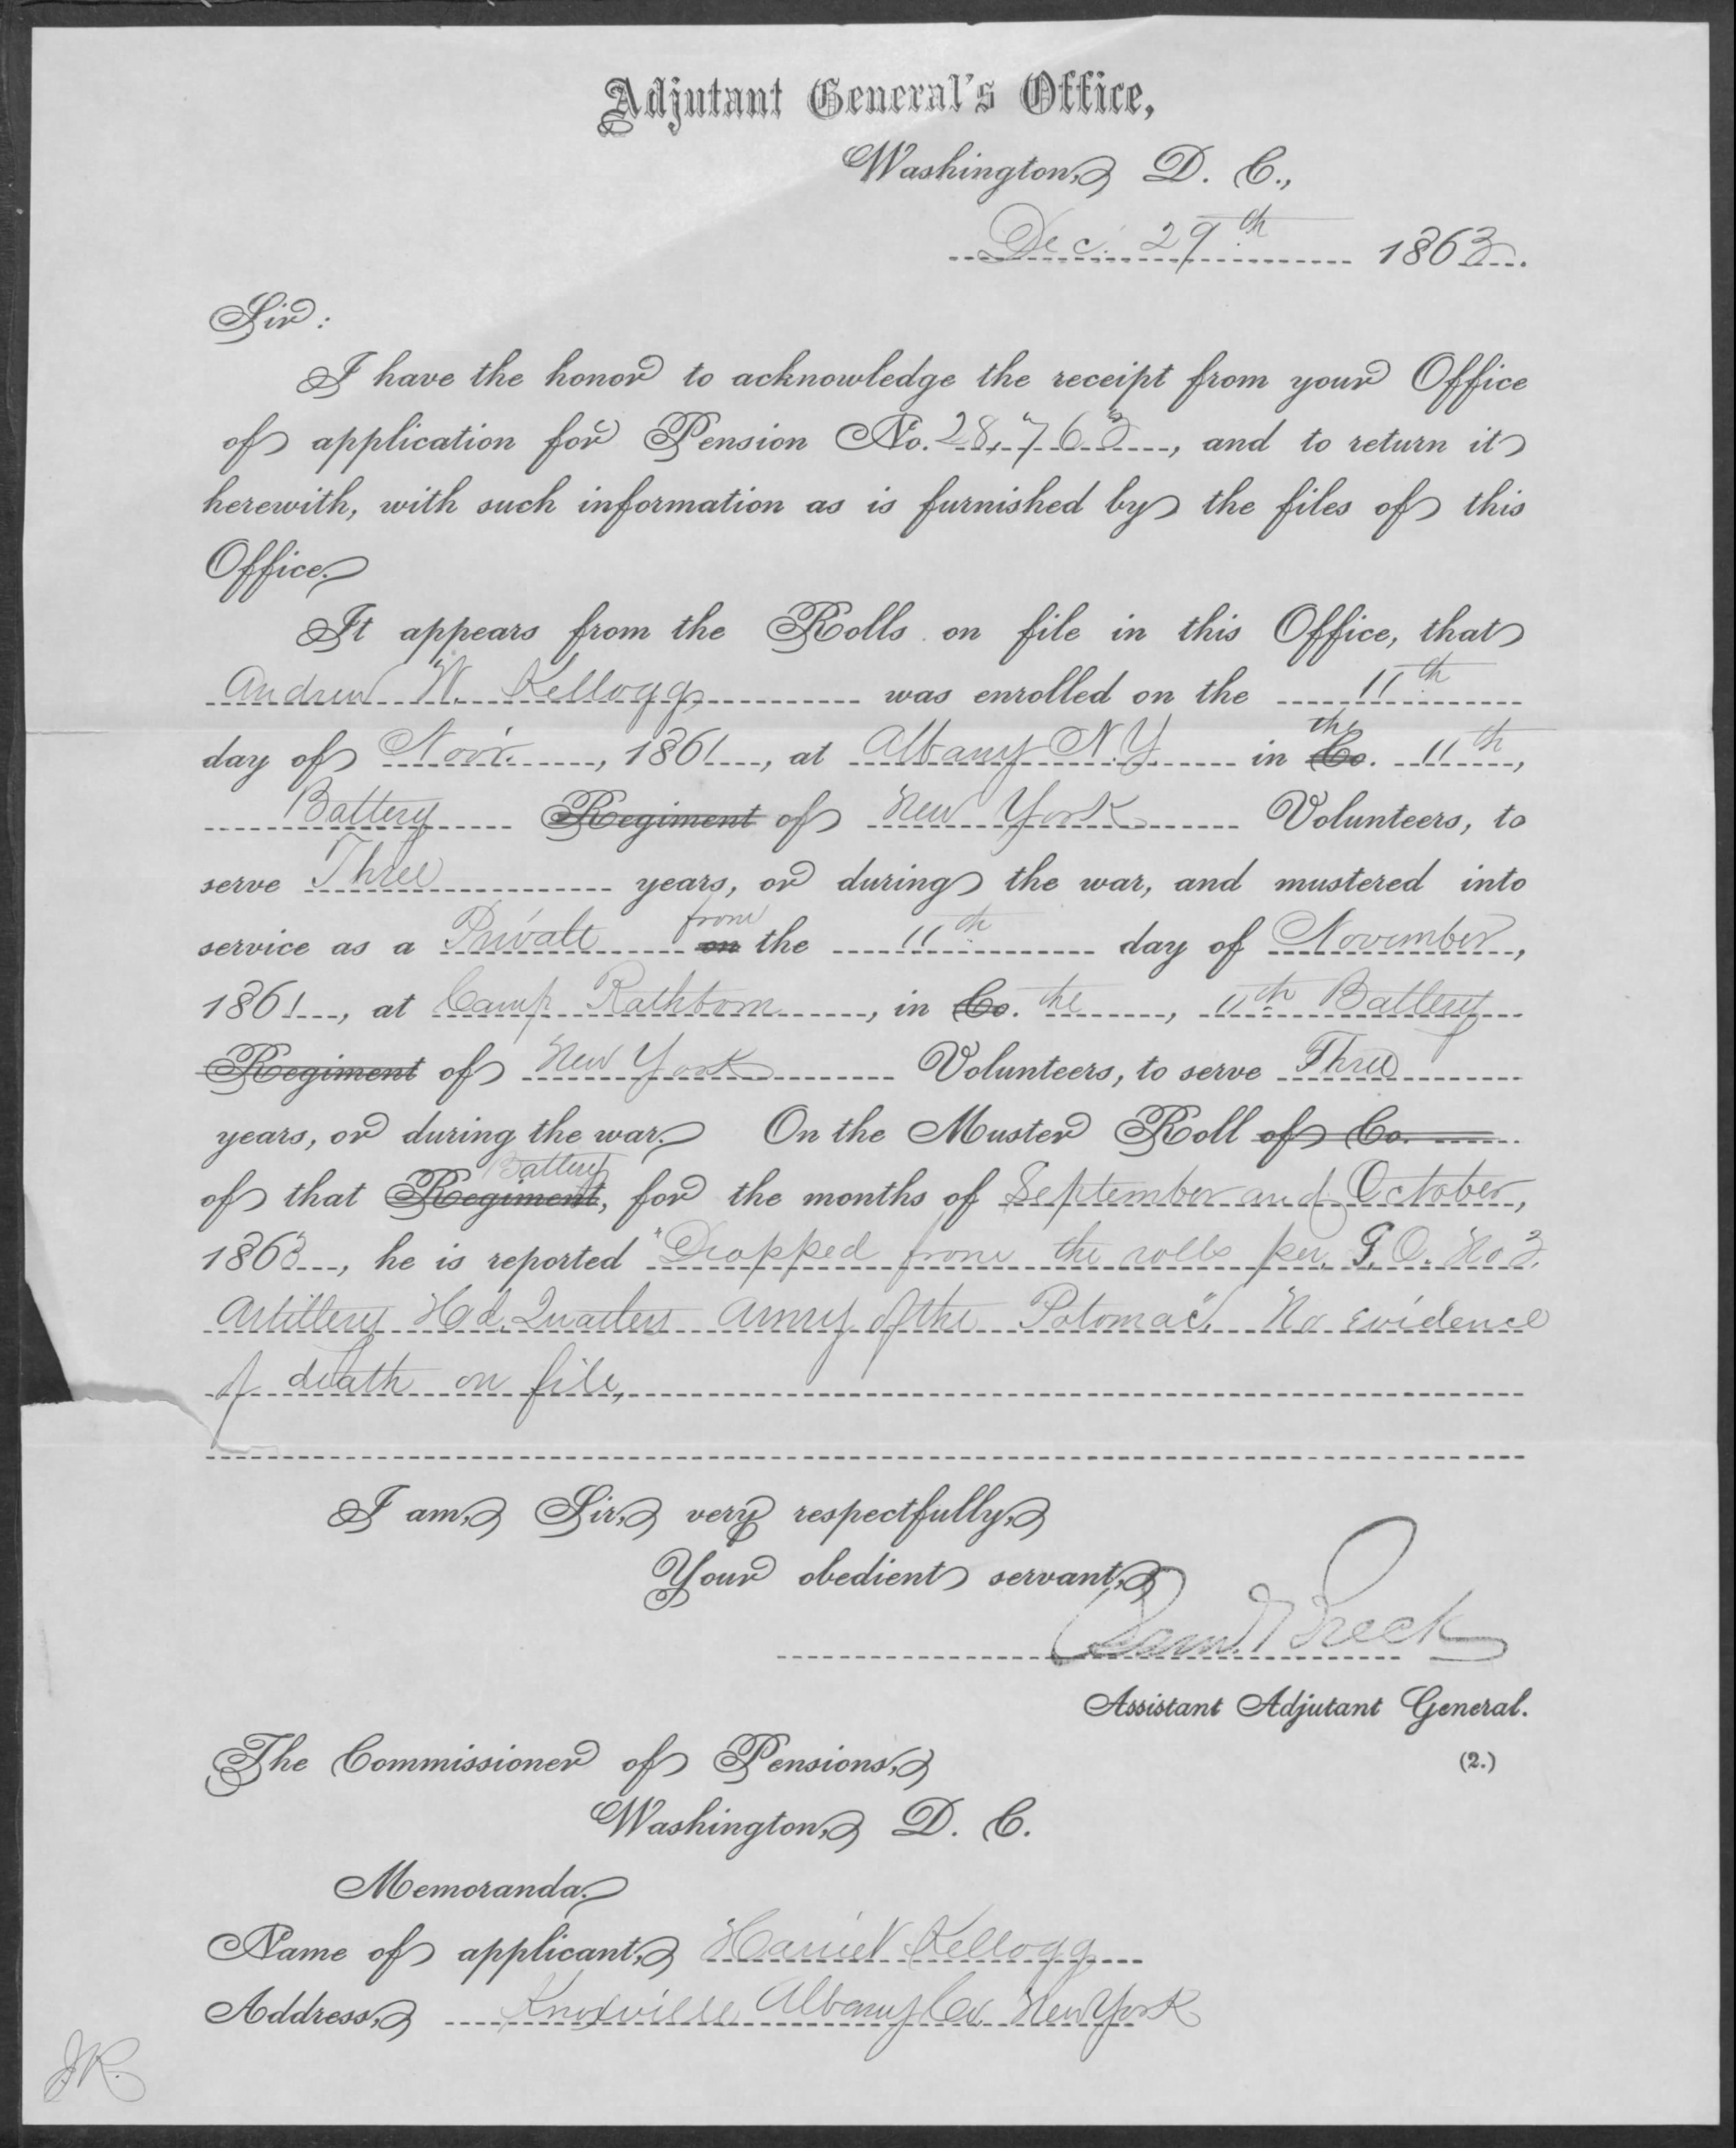 Adjutant General's Office,
Washington, D. C.,
Dec. 29th 1863.
Sir:
I have the honor to acknowledge the receipt from your Office
of application for Pension No. 28,763, and to return it
herewith, with such information as is furnished by the files of this
Office.
It appears from the Rolls on file in this Office, that
Andrew W. Kellogg was enrolled on the 11th
day of Novr., 1861, at Albany N.Y. in the Co. 11th,
Battery Regiment of New York Volunteers, to
serve Three years, or during the war, and mustered into
service as a Private from on the 11th day of November,
1861, at Camp Rathbone, in Co. the, 11th Battery
Regiment of New York Volunteers, to serve Three
years, or during the war. On the Muster Roll of Co.
of that Battery Regiment, for the months of September and October,
1863, he is reported "Dropped from the rolls per. G.O. No 3.
Artillery Hd. Quarters Army of the Potomac". No evidence
of death on file,
I am, Sir, very respectfully,
Your obedient servant,
Saml. Breck
Assistant Adjutant General.
The Commissioner of Pensions, (2.)
Washington, D. C.
Memoranda.
Name of applicant, Harriet Kellogg
Address, Knoxville Albany Co. New York
J.R.